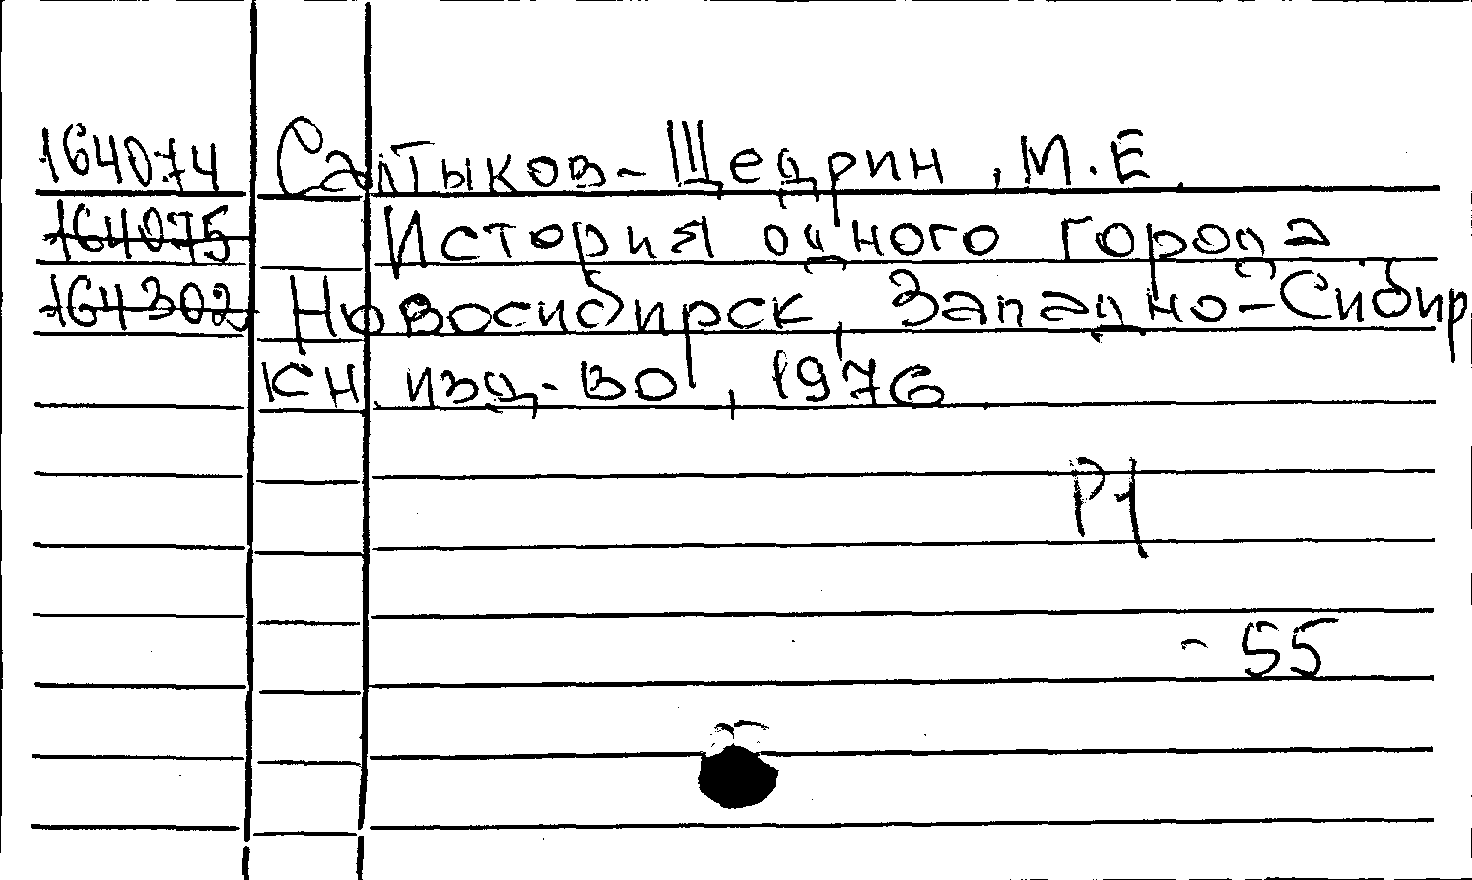 164074 Салтыков-Щедрин, М.Е.
164075 История одного города
164302 Новосибирск, Западно-Сибир
кн. изд-во, 1976
Р1
- 55